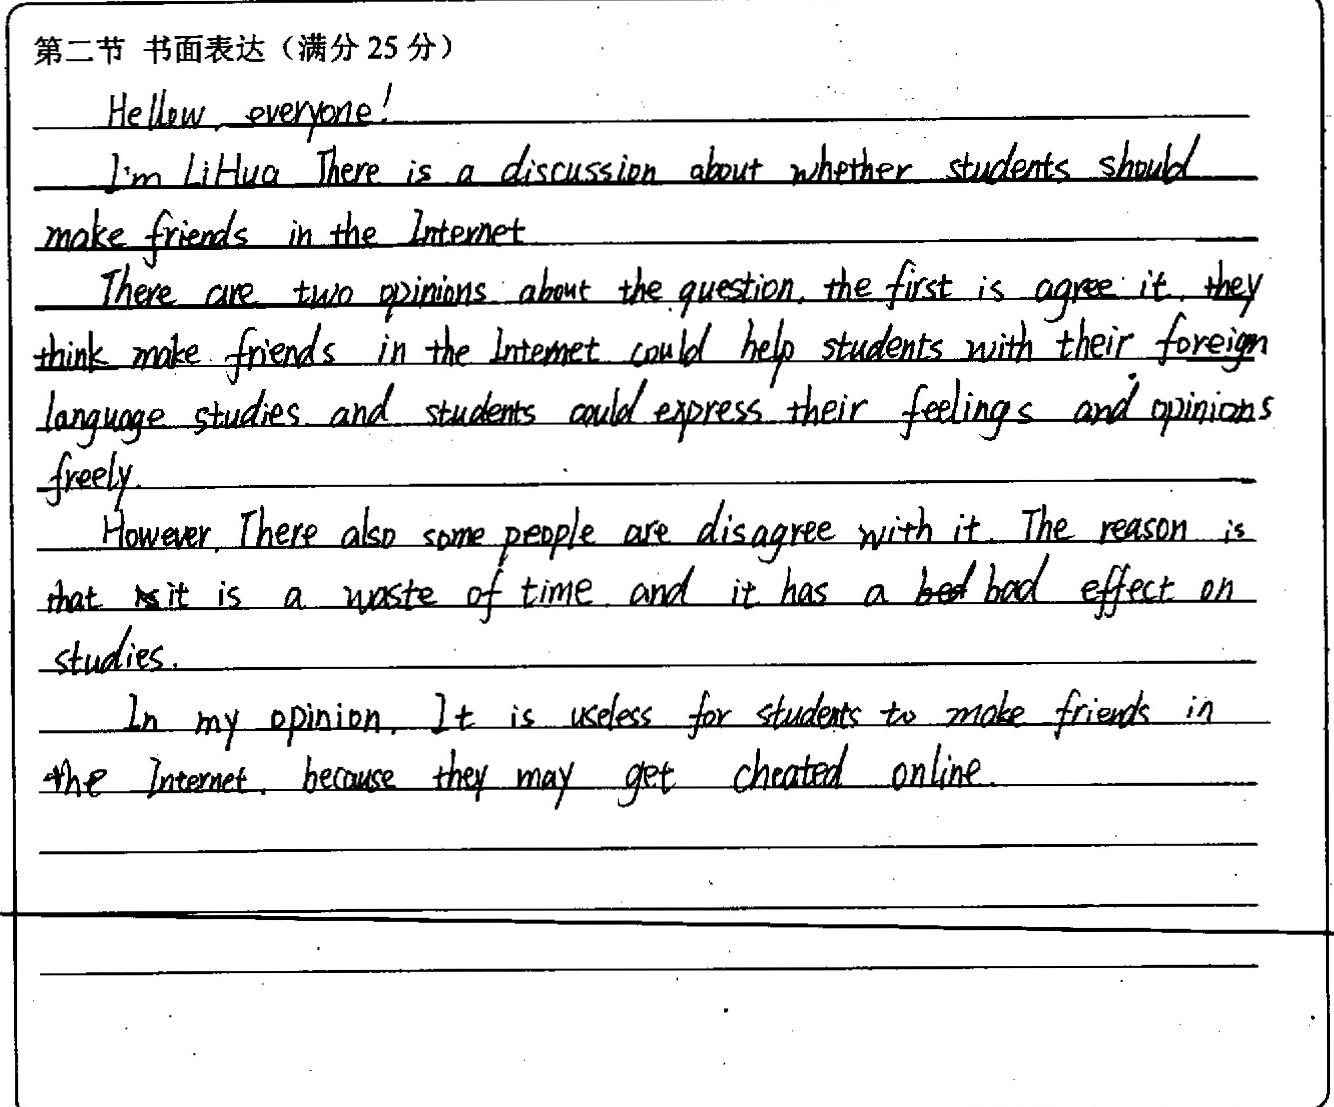 第二节 书面表达（满分 25 分）
Hellow, everyone!
I'm LiHua There is a discussion about whether students should
make friends in the Internet
There are two opinions about the question, the first is agree it, they
think make friends in the Internet could help students with their foreign
language studies and students could express their feelings and opinions
freely.
However, There also some people are disagree with it. The reason is
that it is a waste of time and it has a bad effect on
studies.
In my opinion, It is useless for students to make friends in
the Internet, because they may get cheated online.